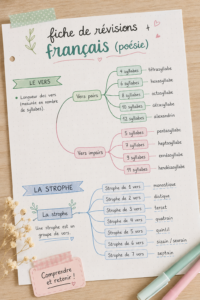 fiche de révisions
français (poésie)
LE VERS
Longueur des vers
(mesurée en nombre
de syllabes).
Vers pairs
4 syllabes
tétrasyllabe
6 syllabes
hexasyllabe
8 syllabes
octosyllabe
10 syllabes
décasyllabe
12 syllabes
alexandrin
Vers impairs
5 syllabes
pentasyllabe
7 syllabes
heptasyllabe
9 syllabes
ennéasyllabe
11 syllabes
hendécasyllabe
LA STROPHE
La strophe
Une strophe est un
groupe de vers.
Strophe de 1 vers
monostique
Strophe de 2 vers
distique
Strophe de 3 vers
tercet
Strophe de 4 vers
quatrain
Strophe de 5 vers
quintil
Strophe de 6 vers
sizain
Strophe de 7 vers
septain
Comprendre
et retenir !